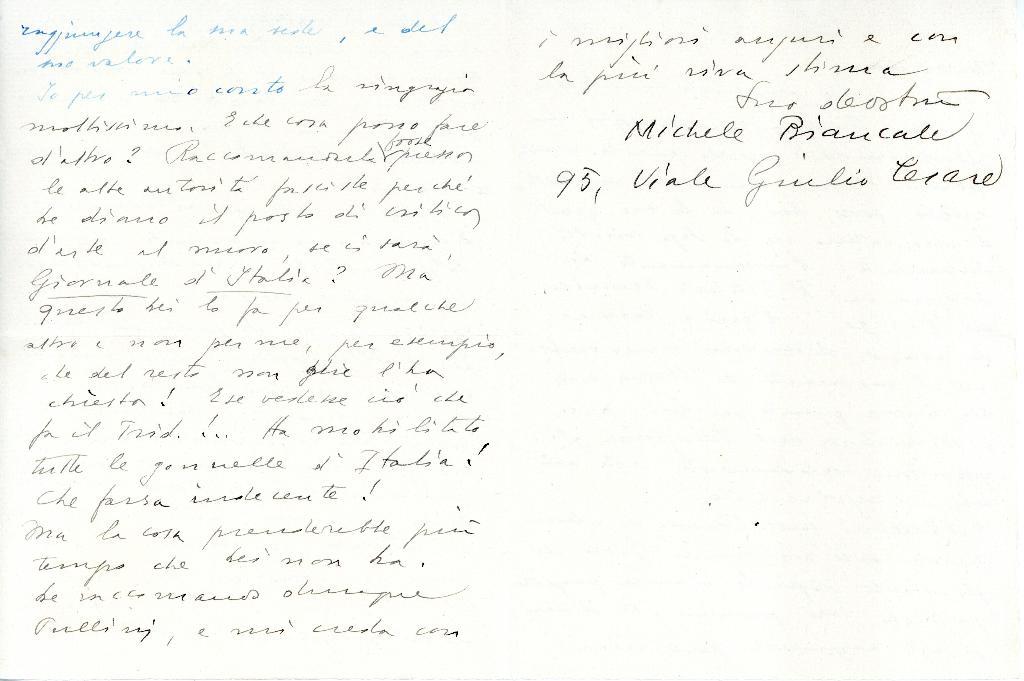 raggiungere la sua sede, e del
suo valore.
Io per mio conto la ringrazio
moltissimo. E che cosa posso fare
d'altro? Raccomandarla forse presso
le alte autorità fasciste perché
le diano il posto di critico
d'arte al nuovo, se ci sarà,
Giornale d'Italia? Ma
questo Lei lo fa per qualche
altro e non per me, per esempio,
che del resto non glie l'ha
chiesto! E se vedesse ciò che
fa il Trid. !.. Ha mobilitato
tutte le gonnelle d'Italia!
Che farsa indecente!
Ma la cosa prenderebbe più
tempo che Lei non ha.
Le raccomando dunque
e mi creda con
i migliori auguri e con
la più viva stima
Suo devotmo
Michele Biancale
95, Viale Giulio Cesare